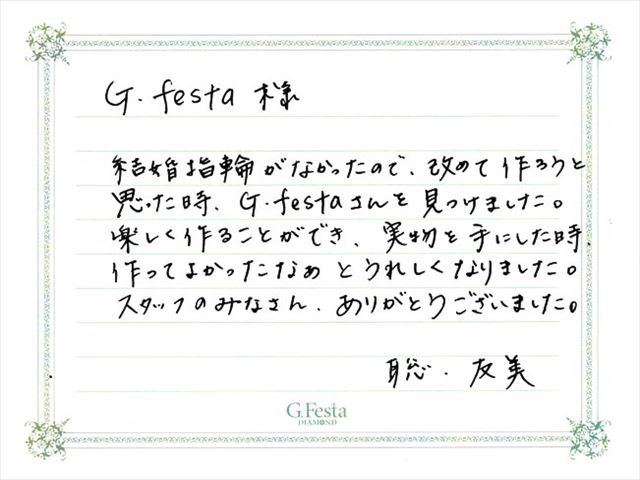 G.festa 様
結婚指輪がなかったので、改めて作ろうと
思った時、G.festaさんを見つけました。
楽しく作ることができ、実物を手にした時、
作ってよかったなぁとうれしくなりました。
スタッフのみなさん、ありがとうございました。
聡・友美
G.Festa
DIAMOND